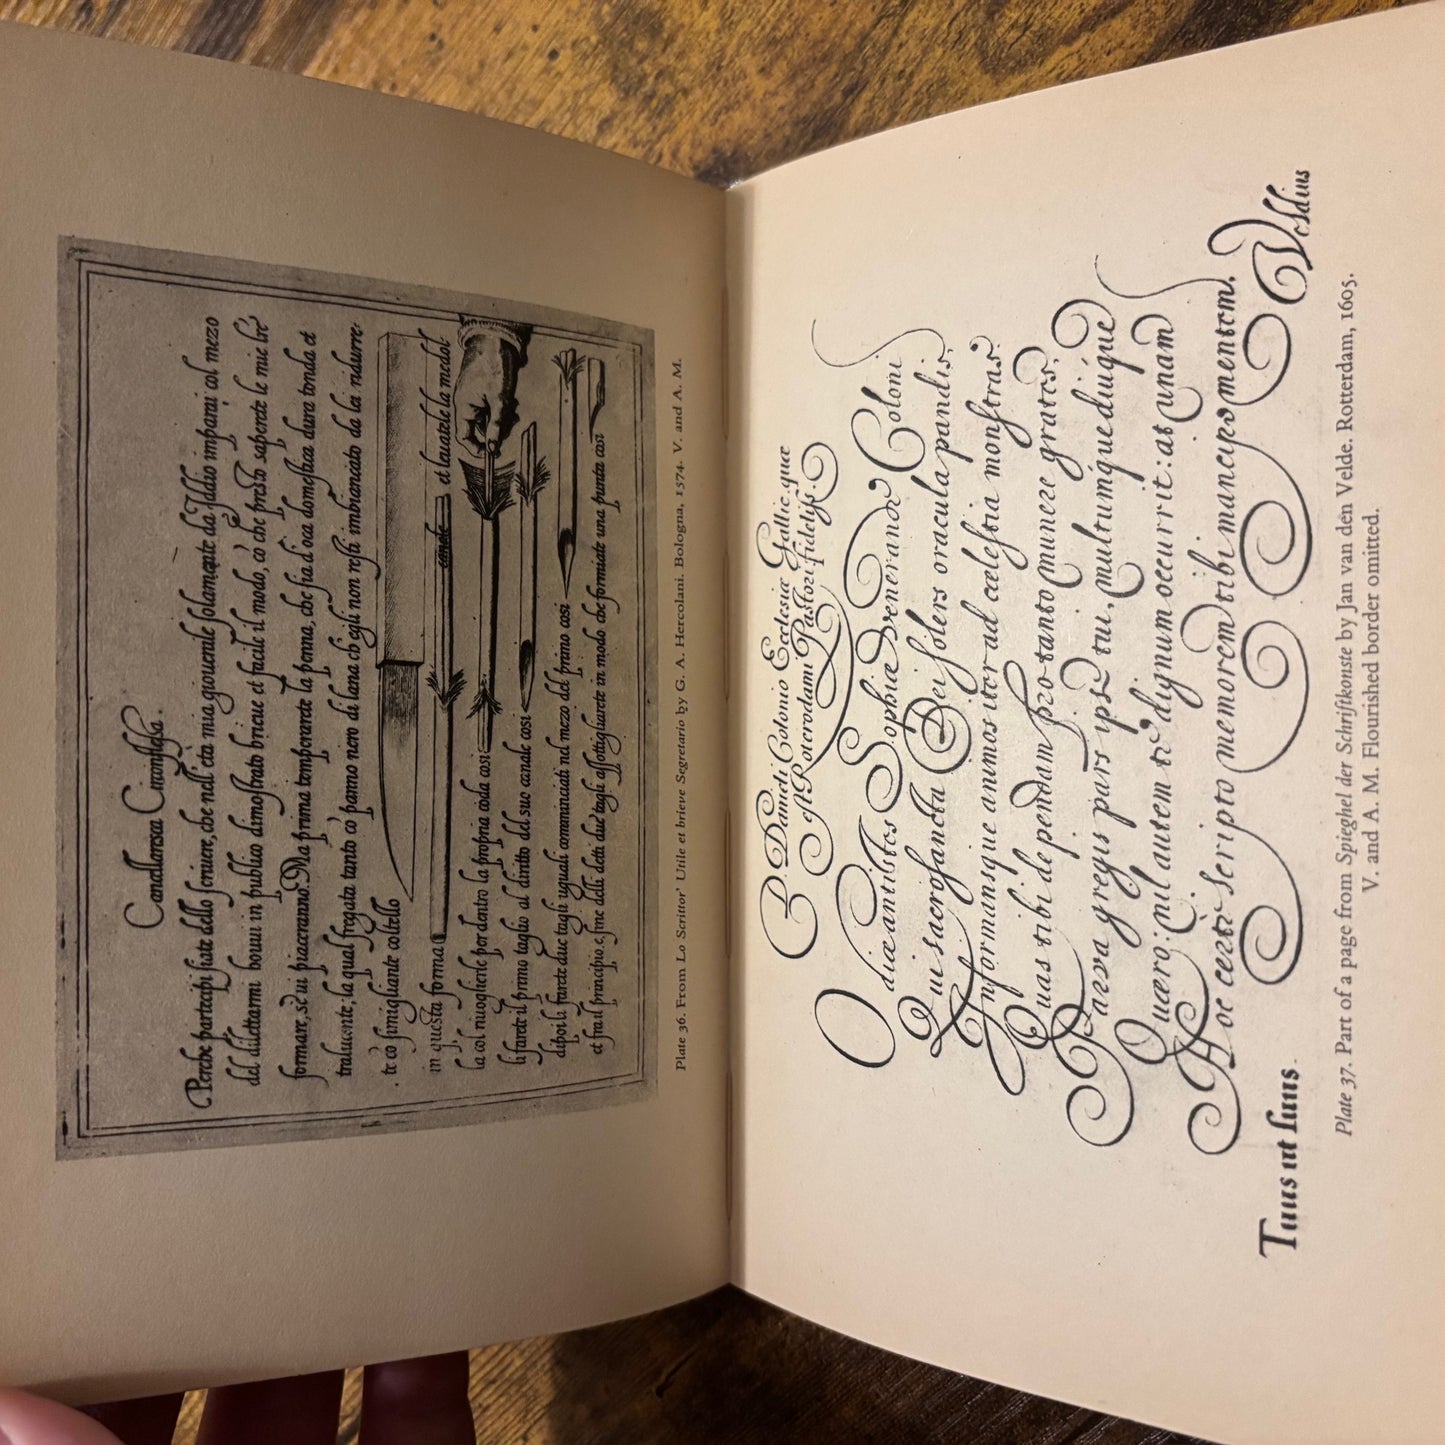 Cancellaresca Circonflessa.
Perche partecipi siate dello scriuere, che nell' età mia giouenile solamente da Iddio imparai col mezo
del dilettarmi hoсui in publico dimostrato brieue et facile il modo, acò che presto saperete le mie lrẽ
formare, se ui piaceranno. Ma prima temperarete la penna, che sia d'oca domestica dura tonda et
tralucente; la qual fregata tanto cõ panno nero di lana ch'egli non resti imbiancato da lei ridurre-
te cõ simigliante coltello
in questa forma canale et leuatele la medol-
la col riuoglierle per dentro la propria coda così
li farete il primo taglio al diritto del suo canale così
dipoi li farete due tagli uguali cominciati nel mezo del primo così
et fra il principio, e fine delli detti due tagli assottigliarete in modo che formiate una punta così
Plate 36. From Lo Scrittor' Utile et brieve Segretario by G. A. Hercolani. Bologna, 1574. V. and A. M.
D. Danieli Colonio Ecclesiæ Gallicæ quæ
est Roterodami Pastori fideliss.
O diæ antistes Sophiæ Venerande Coloni
Qui sacrosancta Dei solers oracula pandis,
Informansque animos iter ad cœlestia monstras.
Quas tibi dependam pro tanto munere grates,
Parva gregis pars ipse tui, multumque diuque
Quæro: nil autem te dignum occurrit: at unam
Hoc certè scripto memorem tibi mancupo mentem.
Tuus ut suus Veldius
Plate 37. Part of a page from Spieghel der Schriftkonste by Jan van den Velde. Rotterdam, 1605.
V. and A. M. Flourished border omitted.